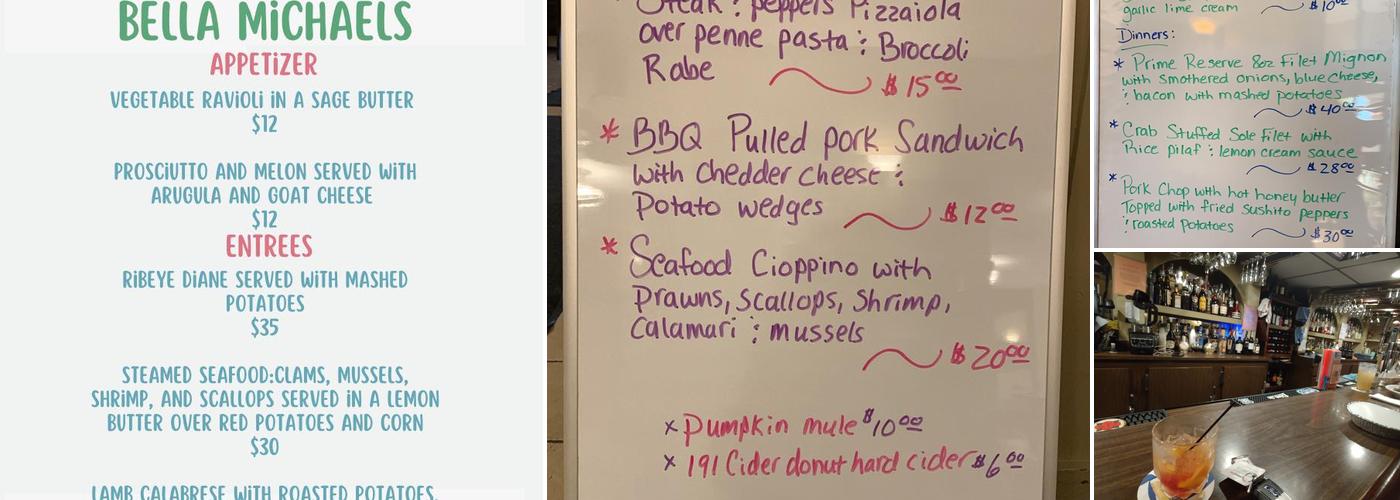 BELLA MiCHAELS
APPETiZER
VEGETABLE RAViOLi iN A SAGE BUTTER
$12
PROSCiUTTO AND MELON SERVED WiTH
ARUGULA AND GOAT CHEESE
$12
ENTREES
RiBEYE DiANE SERVED WiTH MASHED
POTATOES
$35
STEAMED SEAFOOD:CLAMS, MUSSELS,
SHRiMP, AND SCALLOPS SERVED iN A LEMON
BUTTER OVER RED POTATOES AND CORN
$30
LAMB CALABRESE WiTH ROASTED POTATOES,
Steak : peppers Pizzaiola
over penne pasta : Broccoli
Rabe $15.00
* BBQ Pulled pork Sandwich
with chedder cheese :
Potato wedges $12.00
* Seafood Cioppino with
prawns, scallops, shrimp,
calamari : mussels
$20.00
x Pumpkin mule $10.00
x 1911 Cider donut hard cider $6.00
garlic lime cream $10.00
Dinners:
* Prime Reserve 8oz Filet Mignon
with smothered onions, blue cheese,
: bacon with mashed potatoes
$40.00
* Crab Stuffed Sole Filet with
Rice pilaf : lemon cream sauce
$28.00
* Pork Chop with hot honey butter
Topped with fried Sushito peppers
: roasted potatoes $30.00